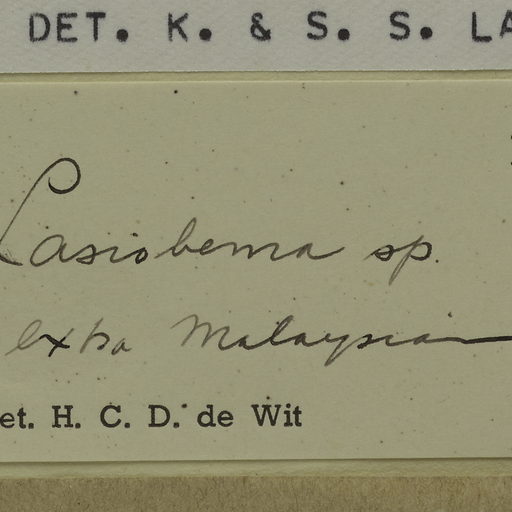 DET. K. & S. S. LA
Lasiobema sp.
extra Malaysian
et. H. C. D. de Wit